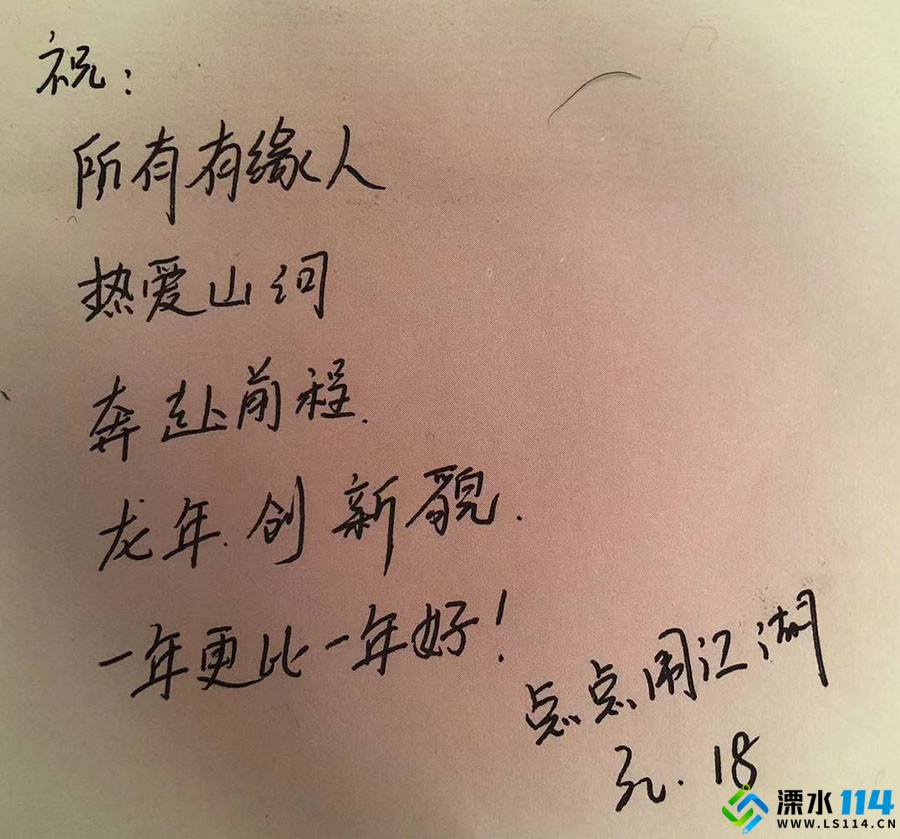 祝：
所有有缘人
热爱山河
奔赴前程.
龙年.创新貌.
一年更比一年好！
点点闹江湖
元.18
溧水114
WWW.LS114.CN